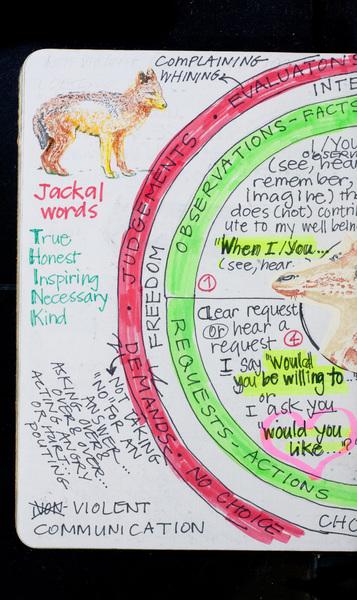 COMPLAINING
WHINING
JUDGEMENTS • EVALUATONS
INTE
OBSERVATIONS-FACTS
Jackal
words
True
Honest
Inspiring
Necessary
Kind
FREEDOM
I/You
OBSERV
(see, hear
remember,
imagine) tha
does (not) contri
ute to my well being
"When I/You...
(see, hear
1
Clear request
OR hear a
request 4
I say "Would
you be willing to..."
or
I ask you
"would you
like..."?
REQUESTS-ACTIONS
• DEMANDS • NO CHOICE
CHO
NOT TAKING
"NO" FOR AN
ANSWER
ASKING OVER &
OVER & OVER...
POUTING
NON-VIOLENT
COMMUNICATION